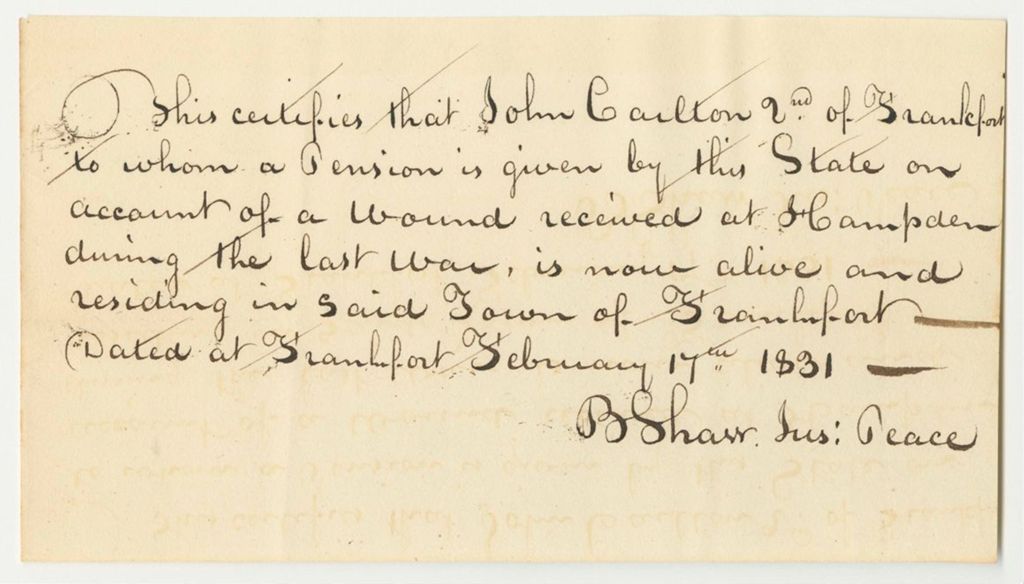 This certifies that John Carlton 2nd. of Frankfort
to whom a Pension is given by this State on
account of a wound received at Hampden
during the last war, is now alive and
residing in said Town of Frankfort —
Dated at Frankfort February 17th 1831 —
B Shaw. Jus: Peace